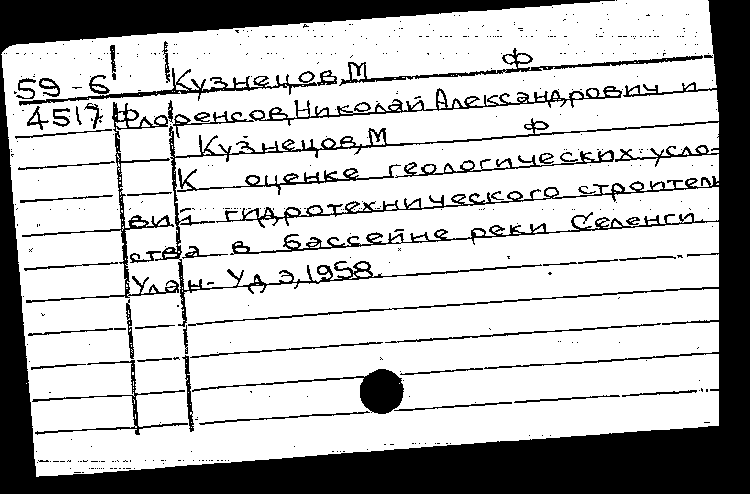 59-6 Кузнецов, М Ф
4517 Флоренсов, Николай Александрович и
Кузнецов, М Ф
К оценке геологических усло-
вий гидротехнического строитель
ства в бассейне реки Селенги.
Улан-Удэ, 1958.